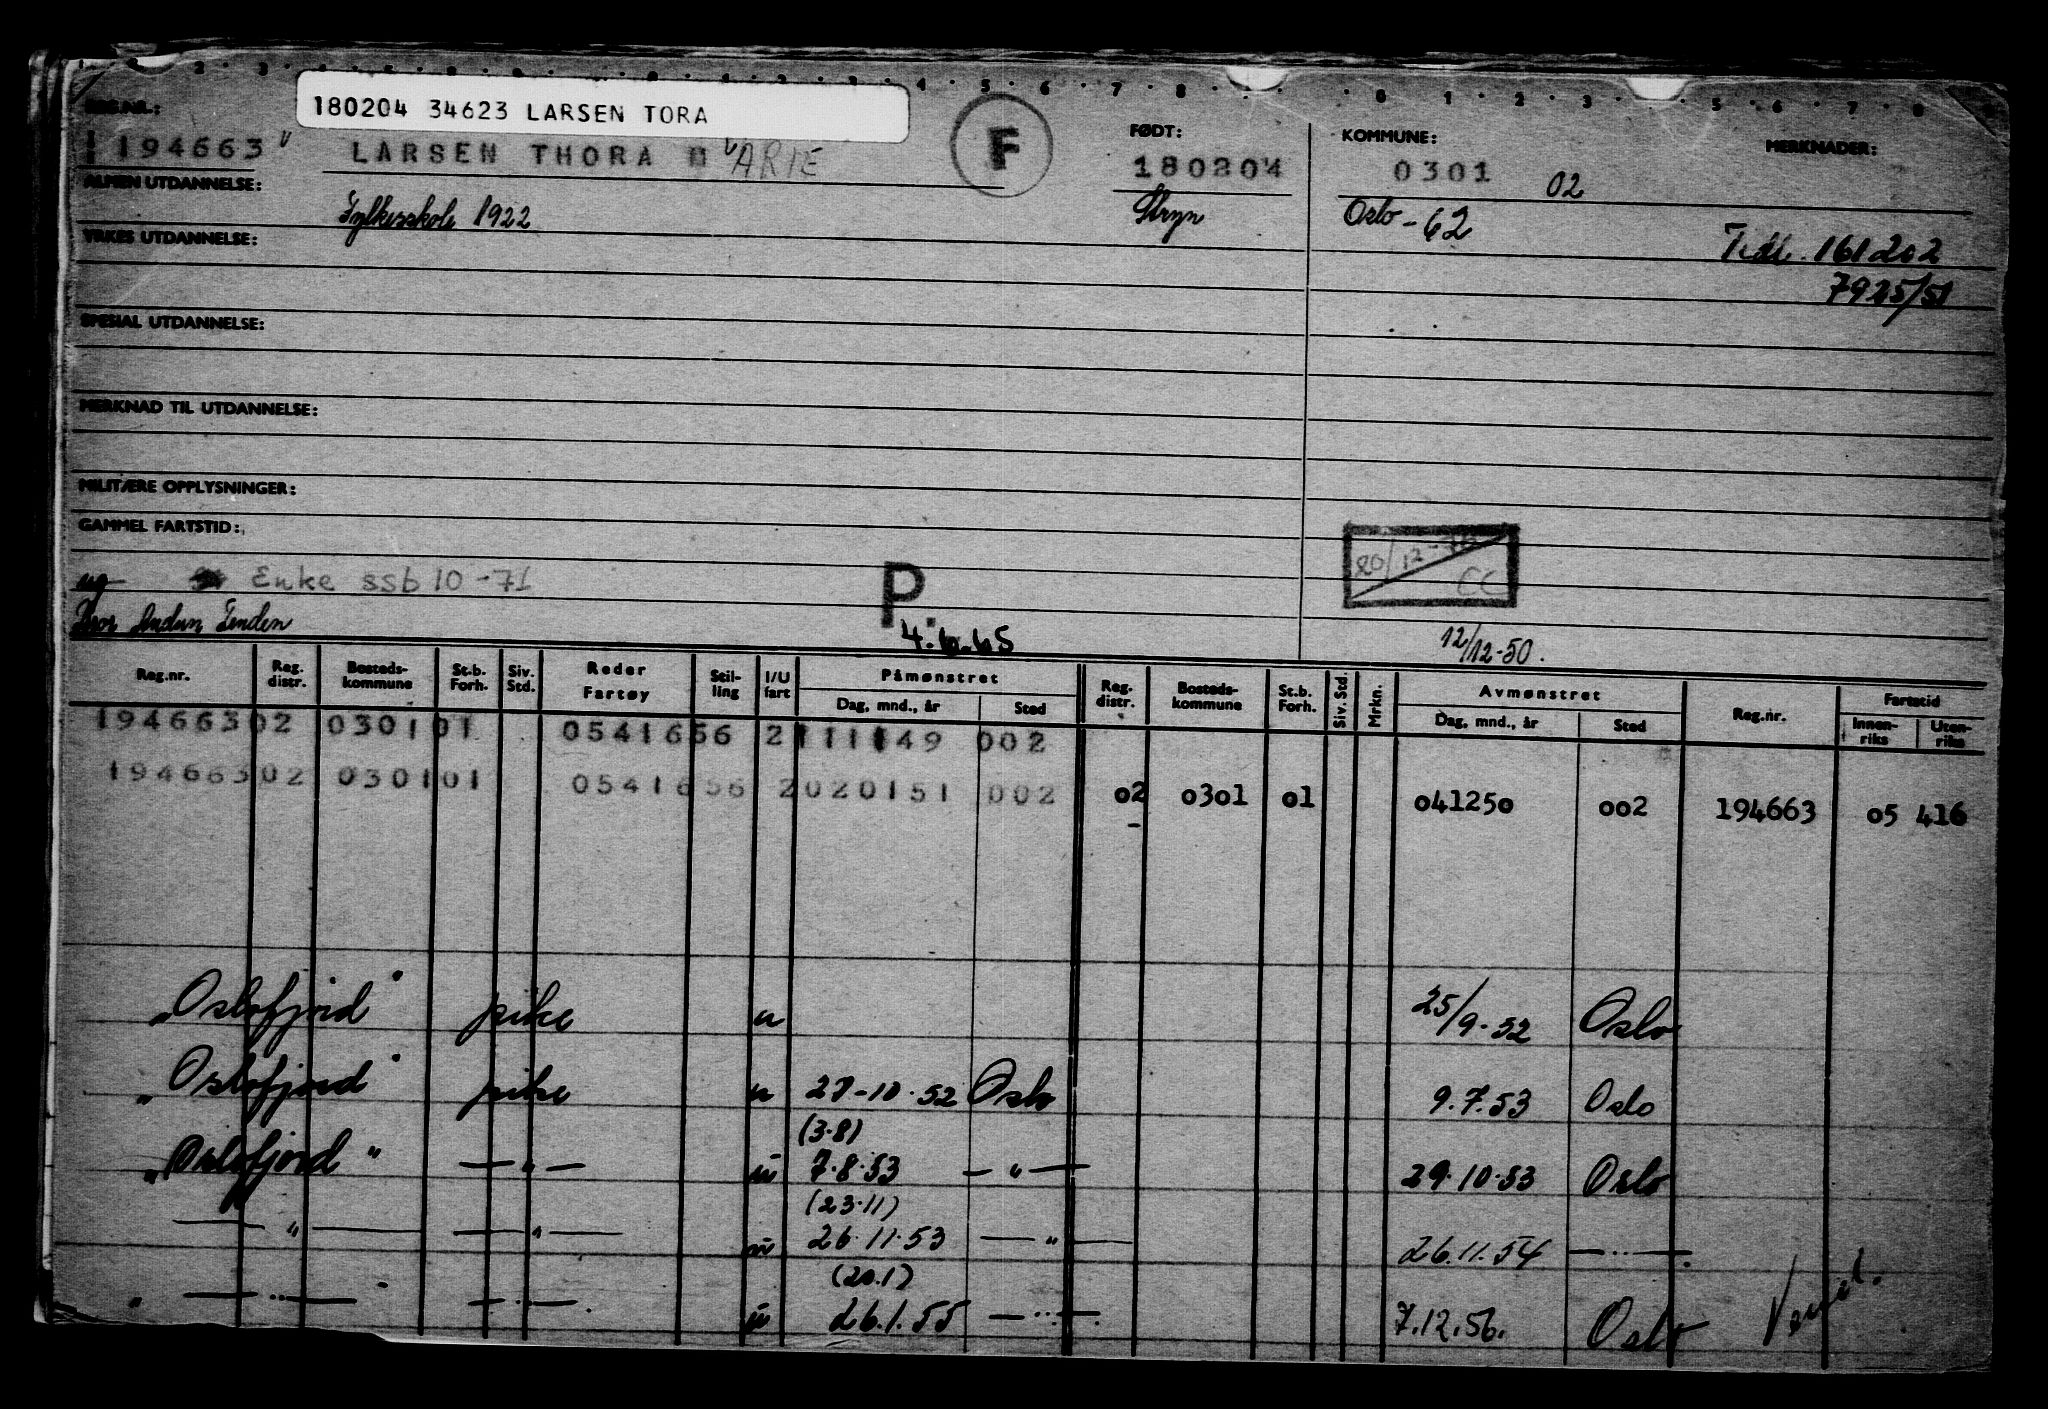 180204 34623 LARSEN TORA
REG.NR.:
194663
LARSEN THORA MARIE
F
FØDT:
180204
Stryn
KOMMUNE:
0301 02
Oslo - 62
MERKNADER:
161202
7925/51
ALMEN UTDANNELSE:
Fylkesskole 1922
YRKES UTDANNELSE:
SPESIAL UTDANNELSE:
MERKNAD TIL UTDANNELSE:
MILITÆRE OPPLYSNINGER:
GAMMEL FARTSTID:
ug Enke ssb 10-71
P.
4.6.65
CC
12/12-50.
Reg.nr. Reg. distr. Bosteds-kommune St.b. Forh. Siv. Std. Reder Fartøy Stil-ling I/U fart Påmønstret Dag, mnd., år Sted Reg. distr. Bosteds-kommune St.b. Forh. Siv. Std. Mrkn. Avmønstret Dag, mnd., år Sted Reg.nr. Fartstid Innen-riks Uten-riks
194663 02 0301 01 0541656 2 111149 002
194663 02 0301 01 0541656 2 020151 002 02 0301 01 041250 002 194663 05 416
"Oslofjord" pike u 25/9-52 Oslo
"Oslofjord" pike u 27-10-52 Oslo 9.7.53 Oslo
(3.8)
"Oslofjord" — " — u 7.8.53 — " — 29.10.53 Oslo
(23.11)
— " — — " — u 26.11.53 — " — 26.11.54 — " —
(20.1)
" — " — " — " — u 26.1.55 — " — 7.12.56. Oslo